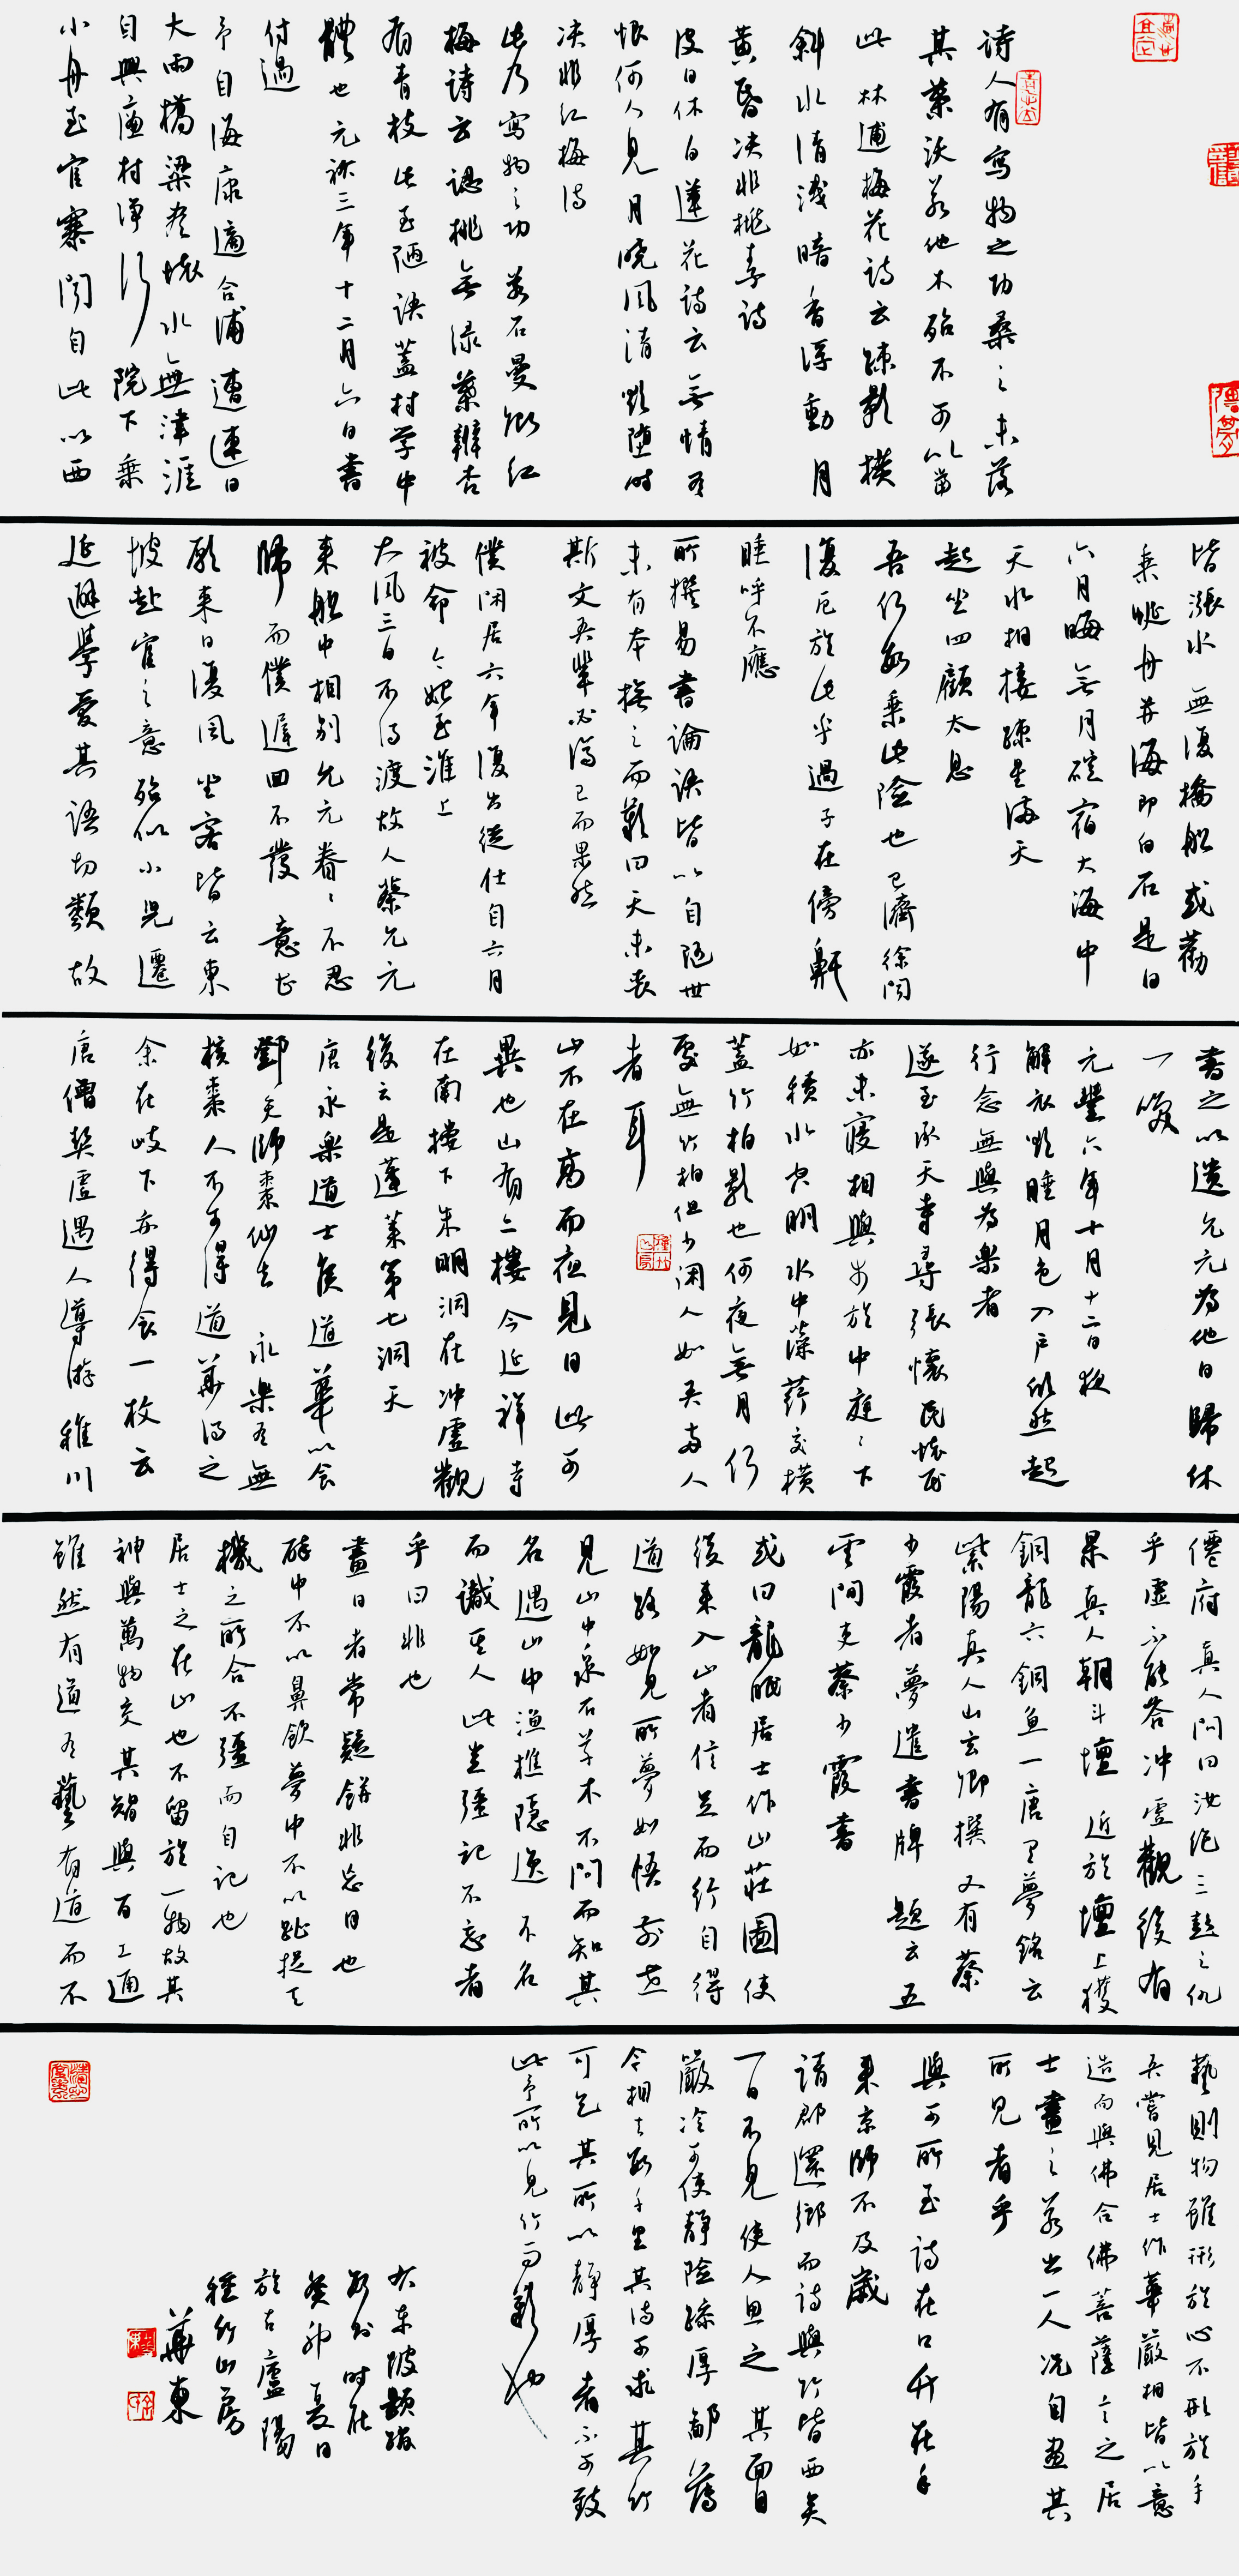 诗人有写物之功桑之未落
其葉沃若他木殆不可以當
此林逋梅花诗云疎影横
斜水清浅暗香浮動月
黄昏决非桃李诗
皮日休白蓮花诗云無情有
恨何人見月曉風清欲堕时
决非红梅诗
此乃寫物之功若石曼卿红
梅诗云認桃無绿葉辨杏
有青枝此至陋语蓋村学中
體也元祐三年十二月六日書
付過
予自海康適合浦遭連日
大雨橋梁盡壞水無津涯
自興廉村净行院下乘
小舟至官寨聞自此以西
皆漲水無復橋船或勸
乘蜑舟并海即白石是日
六月晦無月碇宿大海中
天水相接疎星滿天
起坐四顧太息
吾何數乘此險也已濟徐聞
復厄於此乎過子在傍鼾
睡呼不應
所撰易書論语皆以自随世
未有本撫之而歎曰天未喪
斯文吾輩必濟已而果然
僕闲居六年復出從仕自六月
被命今始至淮上
大風三日不得渡故人蔡允元
來船中相别允元眷眷不忍
歸而僕遲回不發意甚
願來日復風坐客皆云東
坡赴官之意殆似小兒遷
延避學愛其語切類故
書之以遗允元為他日歸休
一笑
元豐六年十月十二日夜
解衣欲睡月色入户欣然起
行念無與為樂者
遂至承天寺尋張懷民懷民
亦未寢相與步於中庭庭下
如積水空明水中藻荇交横
蓋竹柏影也何夜無月何
處無竹柏但少闲人如吾两人
者耳
山不在高而夜見日此可
異也山有二樓今延祥寺
在南樓下朱明洞在冲虛觀
後云是蓬萊第七洞天
唐永樂道士侯道華以食
鄧天師棗仙去永樂有無
核棗人不可得道華得之
余在岐下亦得食一枚云
唐僧契虚遇人導游稚川
僊府真人問曰汝绝三彭之仇
乎虚不能答冲虚觀後有
朱真人朝斗壇近於壇上獲
銅龍六銅魚一唐有夢銘云
紫陽真人山玄卿撰又有蔡
少霞者夢遣書牌題云五
雲閣吏蔡少霞書
或曰龍眠居士作山莊圖使
後来入山者信足而行自得
道路如見所夢如悟前世
見山中泉石草木不問而知其
名遇山中漁樵隱逸不名
而識其人此豈强记不忘者
乎曰非也
畫日者常疑餅非忘日也
醉中不以鼻飲夢中不以趾捉天
機之所合不疆而自记也
居士之在山也不留於一物故其
神與萬物交其智與百工通
雖然有道有藝有道而不
藝則物雖形於心不形於手
吾嘗見居士作華嚴相皆以意
造而與佛合佛菩薩言之居
士畫之若出一人况自畫其
所見者乎
與可所至诗在口竹在手
来京師不及歲
請郡還鄉而诗與竹皆西矣
一日不見使人思之其面目
嚴冷可使靜險躁厚鄙薄
今相去數千里其诗可求其竹
可乞其所以靜厚者不可致
此予所以見竹而歎也
右东坡题跋
數则时在
癸卯夏日
於古廬陽
種竹山房
華東